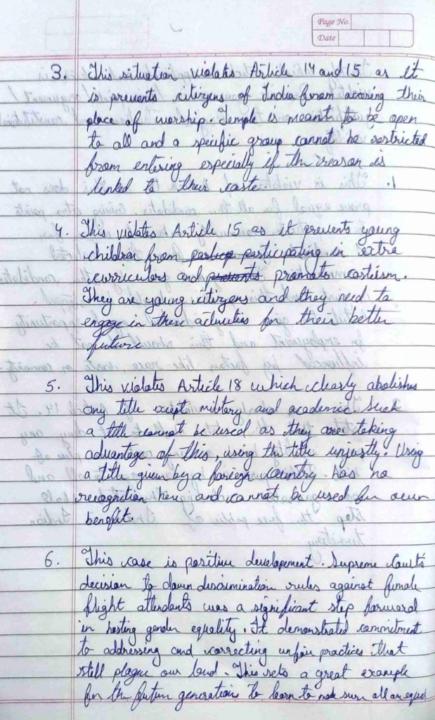 Page No.
Date
3. This situation violates Article 14 and 15 as it
is prevents citizens of India from accering their
place of worship. Temple is meant to be open
to all and a specific group cannot be restricted
from entering especially if the reason is
linked to their caste.
4. This violates Article 15 as it prevents young
children from participating in extra
curriculars and promotes casteism.
They are young citizens and they need to
engage in these activities for their better
future
5. This violates Article 18 which clearly abolishes
any title except military and academic. Such
a title cannot be used as they are taking
advantage of this, using the title unjustly. Using
a title given by a foreign country has no
recognition here and cannot be used for own
benefit.
6. This case is positive development. Supreme Courts
decision to down descrimination rules against female
flight attendants was a significant step forward
in gender equality. It demonstrated commitment
to addressing and correcting unfair practices that
still plague our land. This sets a great example
for the future generations to learn to sure all are equal